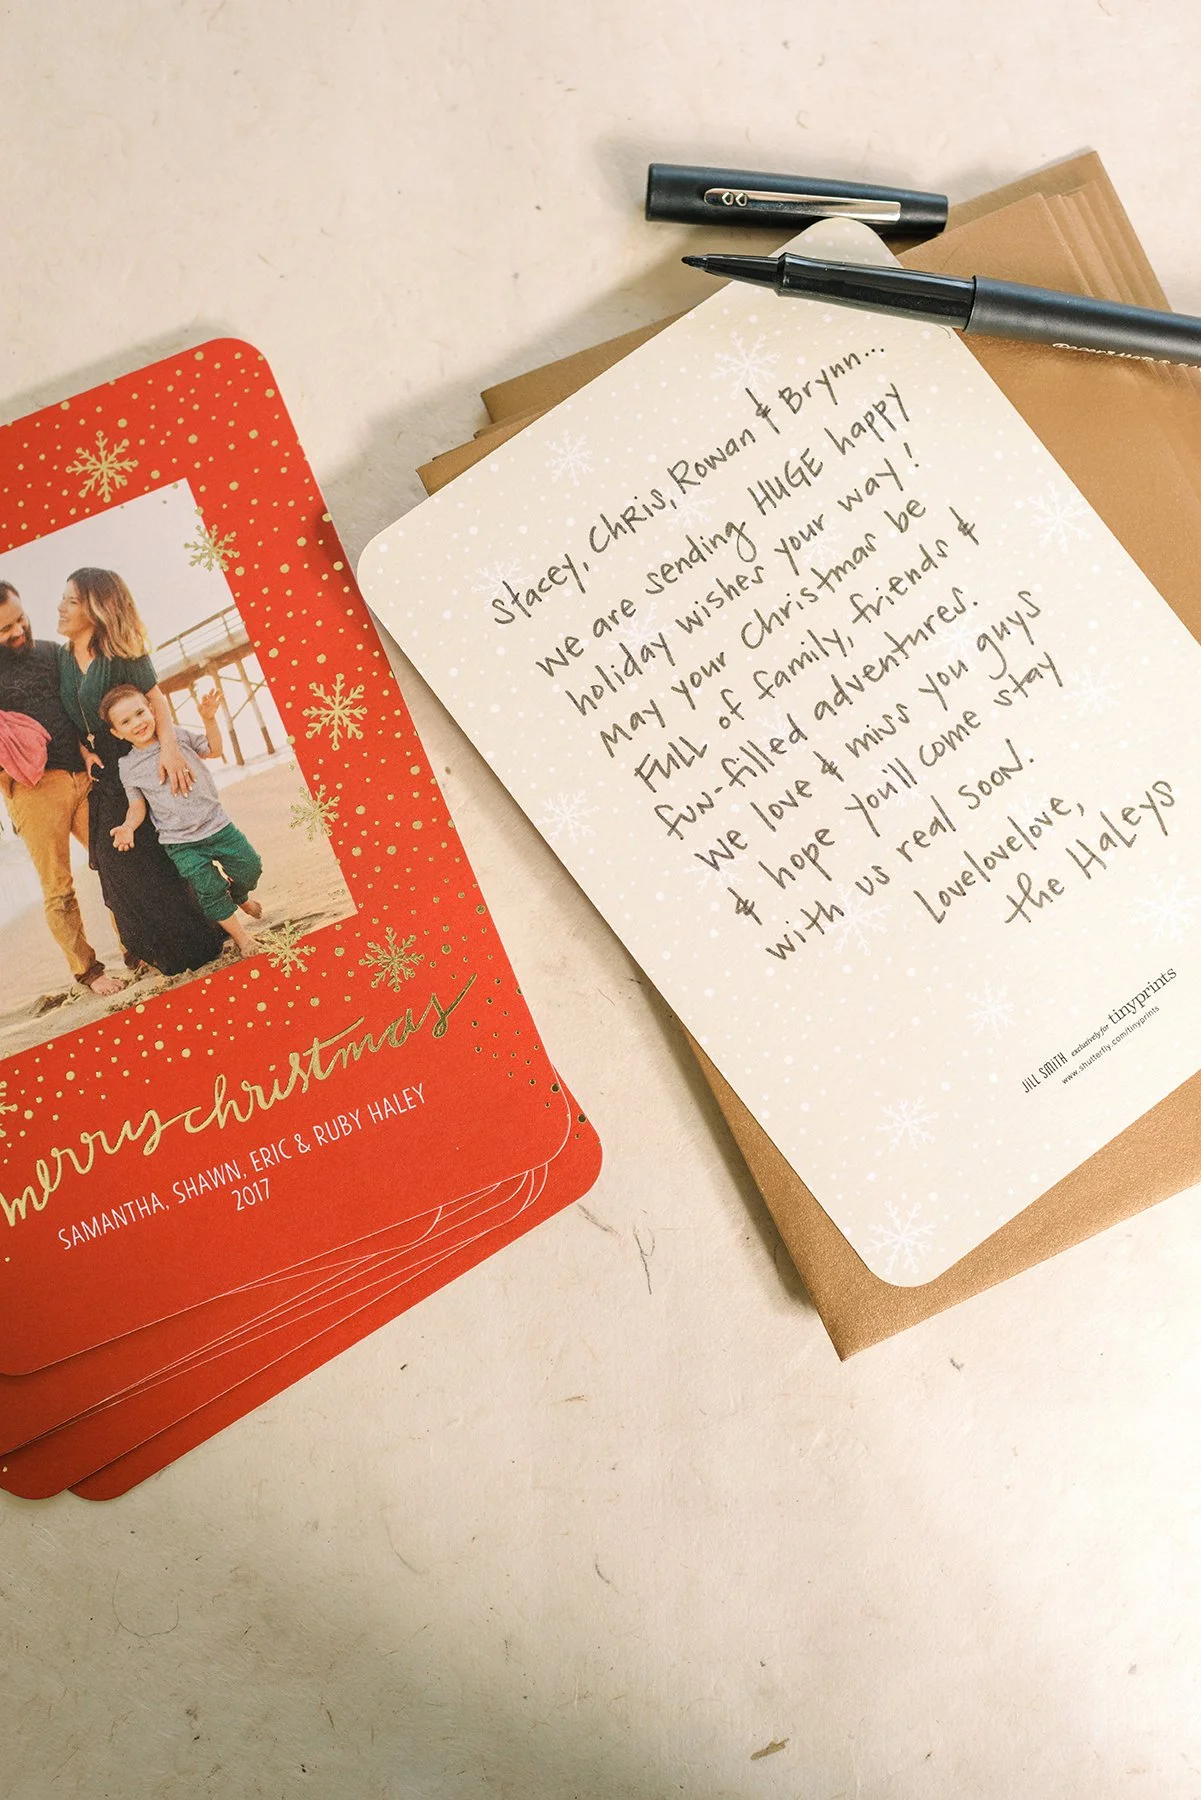 merry christmas
SAMANTHA, SHAWN, ERIC & RUBY HALEY
2017
Stacey, Chris, Rowan & Brynn...
We are sending HUGE happy
holiday wishes your way!
May your Christmas be
FULL of family, friends &
fun-filled adventures.
We love & miss you guys
& hope you'll come stay
with us real soon.
Lovelovelove,
the Haleys
JILL SMITH exclusively for tinyprints
www.shutterfly.com/tinyprints